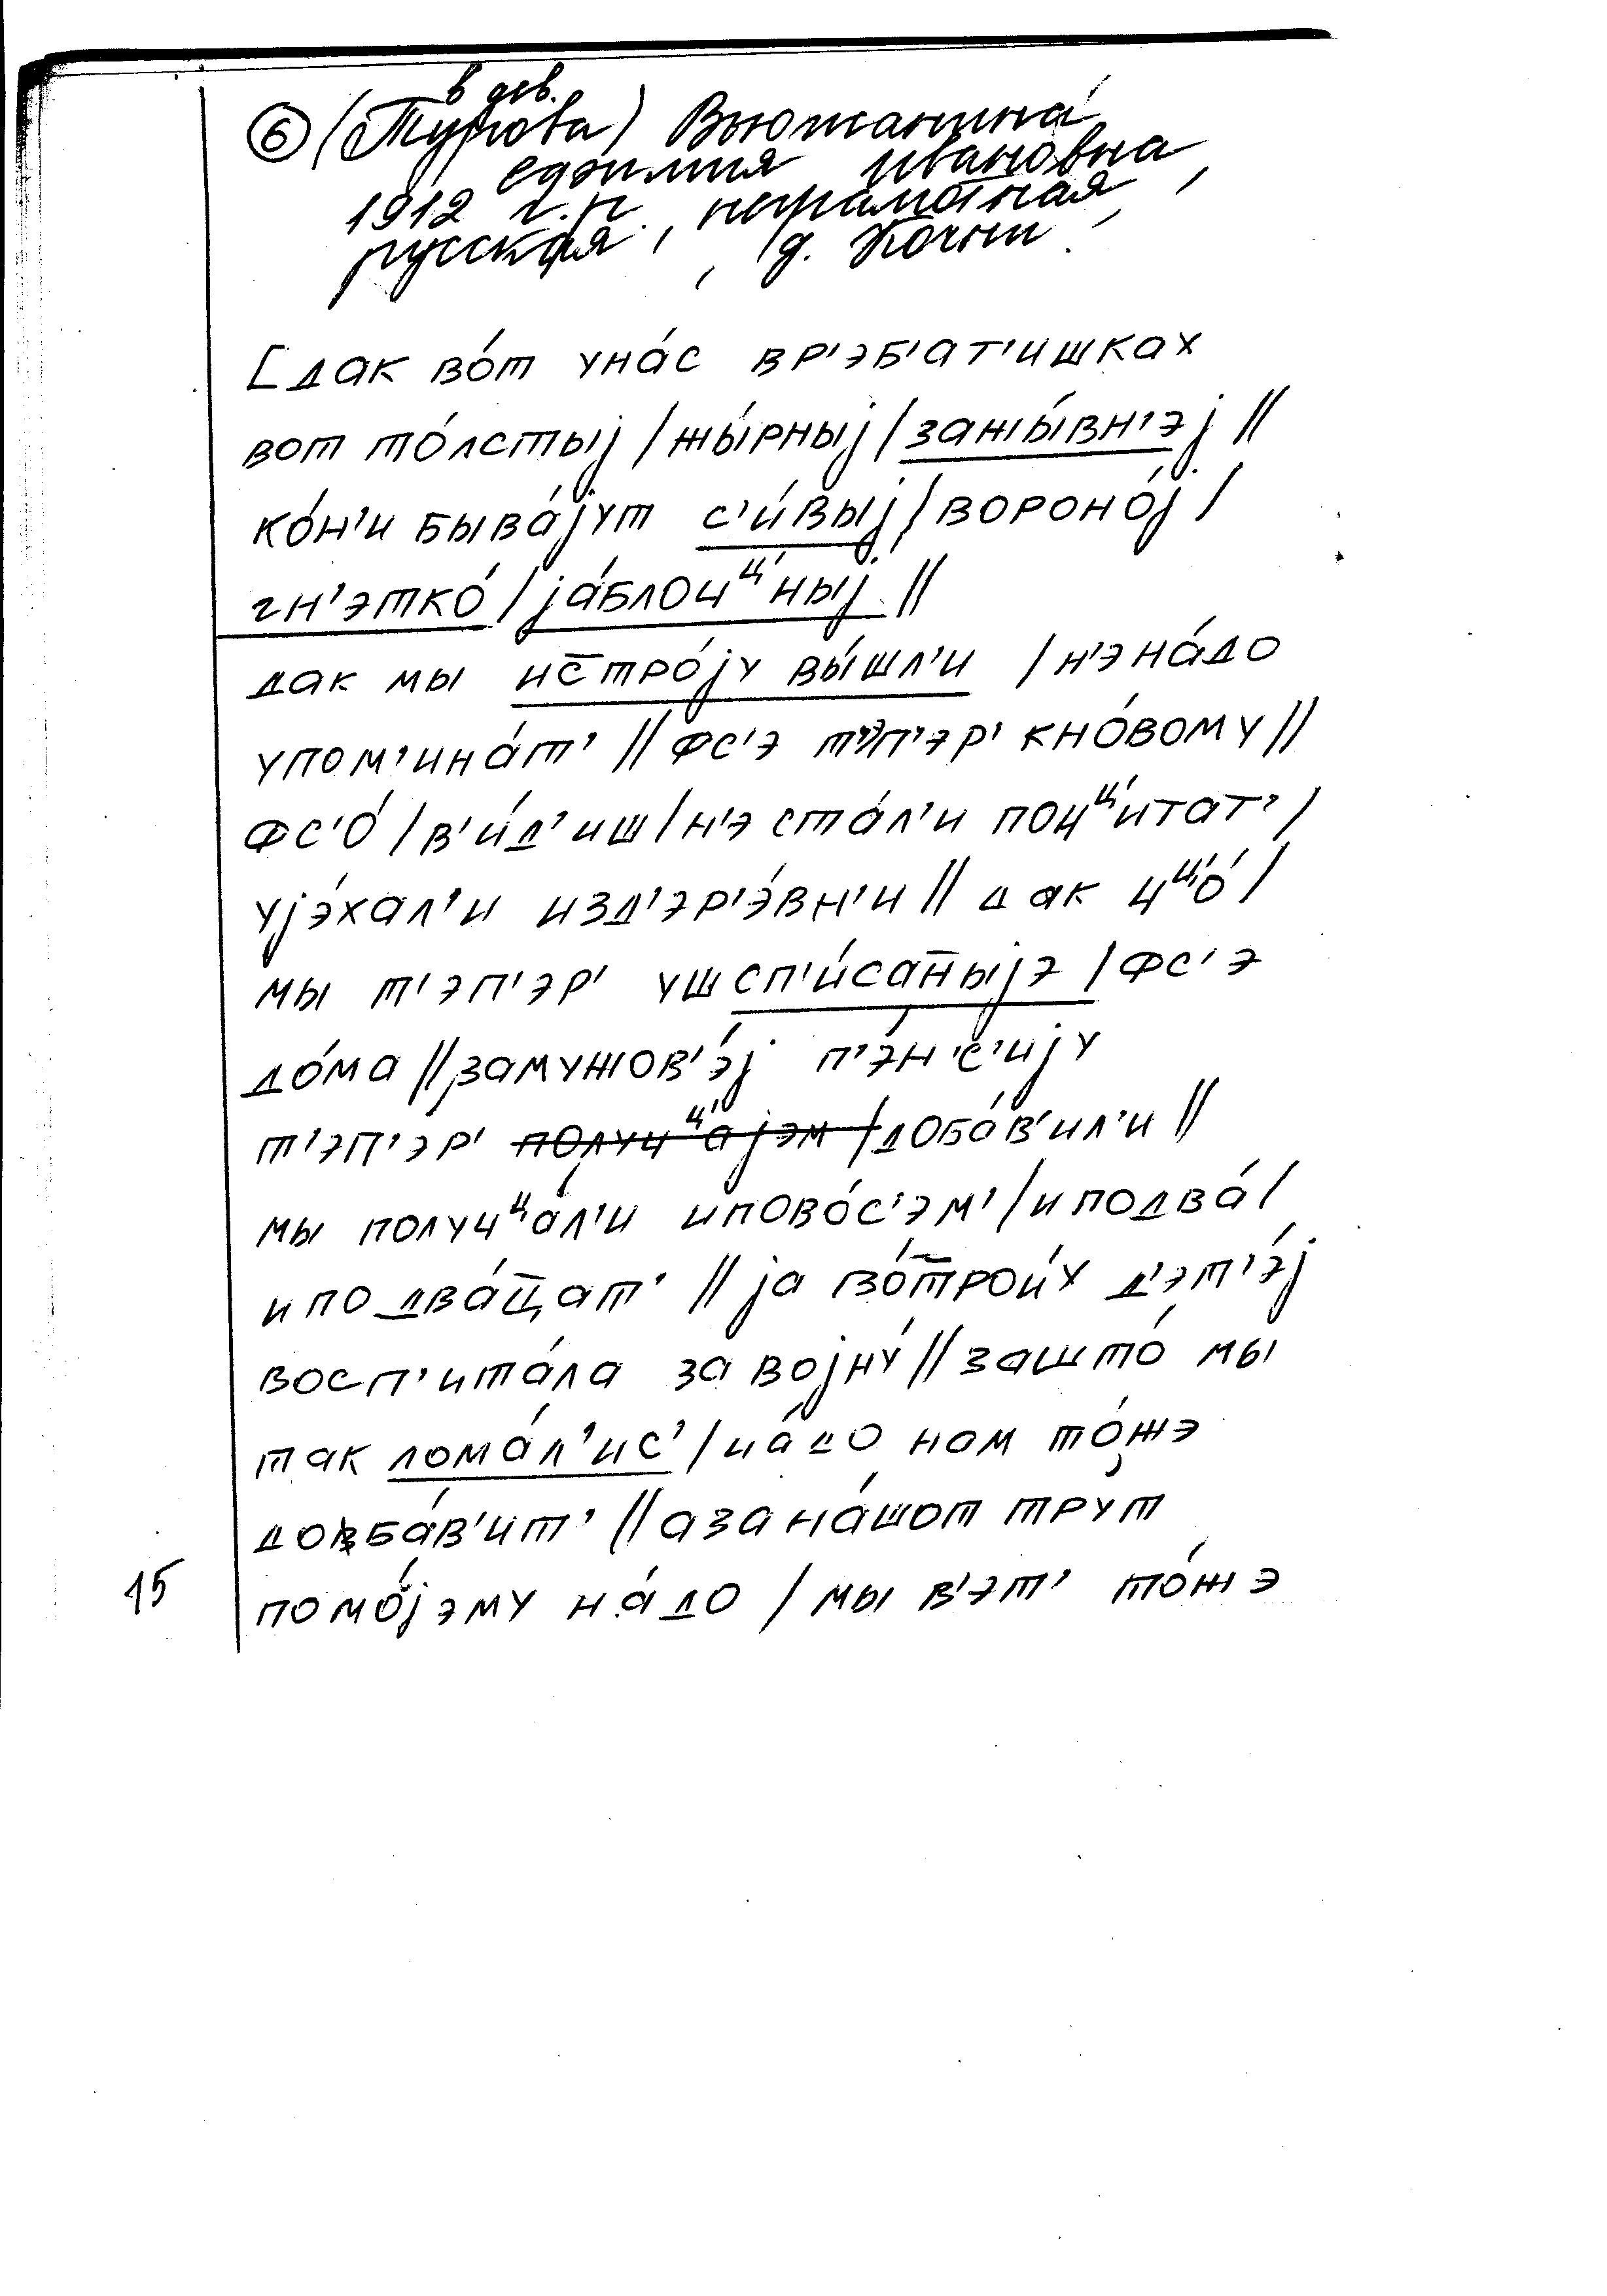 в дев.
⑥ (Турова) Вьюжанина
Ефимия Ивановна,
1912 г.р., неграмотная,
русская, д. Кочыш.
[дак во́т уна́с вр'эб'ат'ишках
вот то́лстыj / жы́рныj / зажы́вн'эj //
ко́н'и быва́jут с'и́выj / вороно́j /
гн'этко́ / jа́блочᶣ'ныj //
дак мы истро́jу вы́шл'и / н'эна́до
упом'ина́т' // фс'э т'эп'эр' кно́вому //
фс'о́ / в'и́д'иш / н'э ста́л'и поцᶣ'итат' /
уjэ́хал'и изд'эр'э́вн'и // дак цᶣ'о́ /
мы т'эп'эр' уш сп'и́сан̄ыjэ / фс'э
до́ма // замужов'э́j п'э́н'с'иjу
т'эп'эр' ~~получᶣ'аjэм /~~ доба́в'ил'и //
мы получᶣа́л'и ипово́с'эм' / и подва́ /
и по два́ц̄ат' // jа во́т̄рои́х д'эт'э́j
восп'ита́ла за воjну́ // зашто́ мы
так лома́л'ис' / на́до ном то́жэ
доба́в'ит' // аза на́шот трут
помо́jэму на́до / мы в'эт' то́жэ
15